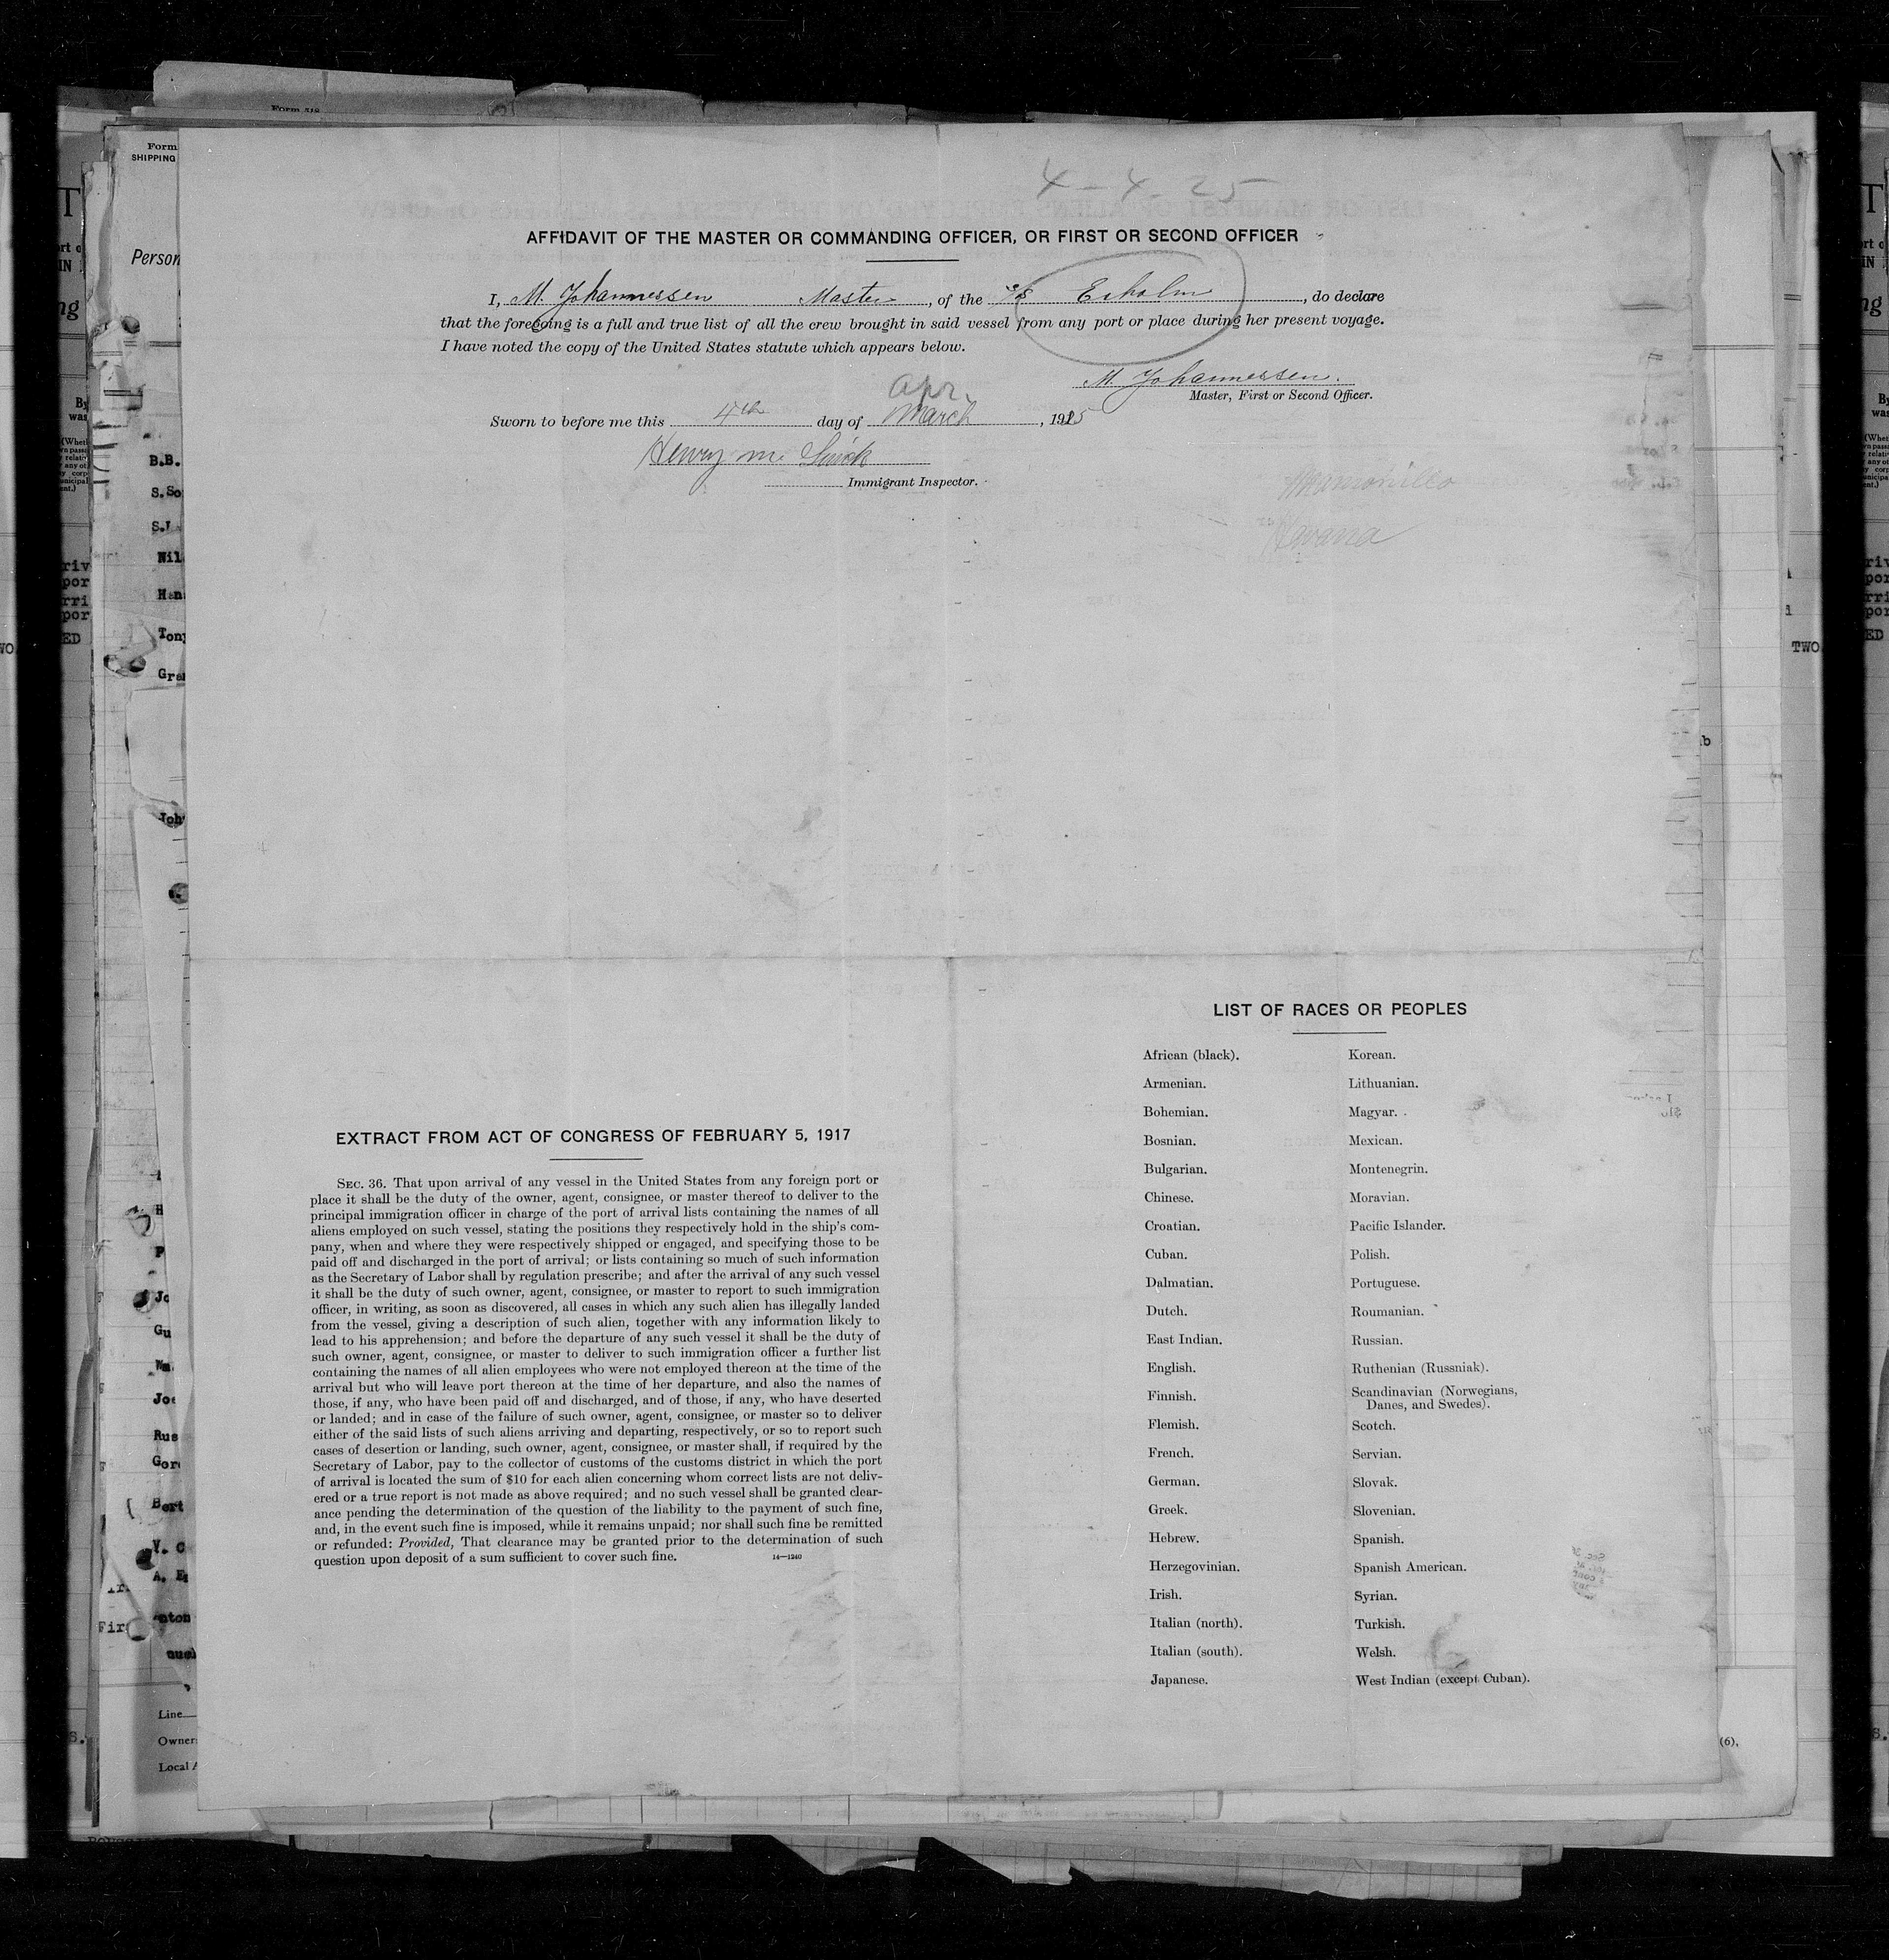 4-4-25
AFFIDAVIT OF THE MASTER OR COMMANDING OFFICER, OR FIRST OR SECOND OFFICER
I, M. Johannessen Master, of the S/S Exholm, do declare
that the foregoing is a full and true list of all the crew brought in said vessel from any port or place during her present voyage.
I have noted the copy of the United States statute which appears below.
M. Johannessen.
Master, First or Second Officer.
Apr.
Sworn to before me this 4th day of March, 1925
Henry M.
Immigrant Inspector.
Manzanillo
Havana
LIST OF RACES OR PEOPLES
African (black).
Armenian.
Bohemian.
Bosnian.
Bulgarian.
Chinese.
Croatian.
Cuban.
Dalmatian.
Dutch.
East Indian.
English.
Finnish.
Flemish.
French.
German.
Greek.
Hebrew.
Herzegovinian.
Irish.
Italian (north).
Italian (south).
Japanese.
Korean.
Lithuanian.
Magyar.
Mexican.
Montenegrin.
Moravian.
Pacific Islander.
Polish.
Portuguese.
Roumanian.
Russian.
Ruthenian (Russniak).
Scandinavian (Norwegians,
Danes, and Swedes).
Scotch.
Servian.
Slovak.
Slovenian.
Spanish.
Spanish American.
Syrian.
Turkish.
Welsh.
West Indian (except Cuban).
EXTRACT FROM ACT OF CONGRESS OF FEBRUARY 5, 1917
SEC. 36. That upon arrival of any vessel in the United States from any foreign port or
place it shall be the duty of the owner, agent, consignee, or master thereof to deliver to the
principal immigration officer in charge of the port of arrival lists containing the names of all
aliens employed on such vessel, stating the positions they respectively hold in the ship's com-
pany, when and where they were respectively shipped or engaged, and specifying those to be
paid off and discharged in the port of arrival; or lists containing so much of such information
as the Secretary of Labor shall by regulation prescribe; and after the arrival of any such vessel
it shall be the duty of such owner, agent, consignee, or master to report to such immigration
officer, in writing, as soon as discovered, all cases in which any such alien has illegally landed
from the vessel, giving a description of such alien, together with any information likely to
lead to his apprehension; and before the departure of any such vessel it shall be the duty of
such owner, agent, consignee, or master to deliver to such immigration officer a further list
containing the names of all alien employees who were not employed thereon at the time of the
arrival but who will leave port thereon at the time of her departure, and also the names of
those, if any, who have been paid off and discharged, and of those, if any, who have deserted
or landed; and in case of the failure of such owner, agent, consignee, or master so to deliver
either of the said lists of such aliens arriving and departing, respectively, or so to report such
cases of desertion or landing, such owner, agent, consignee, or master shall, if required by the
Secretary of Labor, pay to the collector of customs of the customs district in which the port
of arrival is located the sum of $10 for each alien concerning whom correct lists are not deliv-
ered or a true report is not made as above required; and no such vessel shall be granted clear-
ance pending the determination of the question of the liability to the payment of such fine,
and, in the event such fine is imposed, while it remains unpaid; nor shall such fine be remitted
or refunded: Provided, That clearance may be granted prior to the determination of such
question upon deposit of a sum sufficient to cover such fine.
14—1240